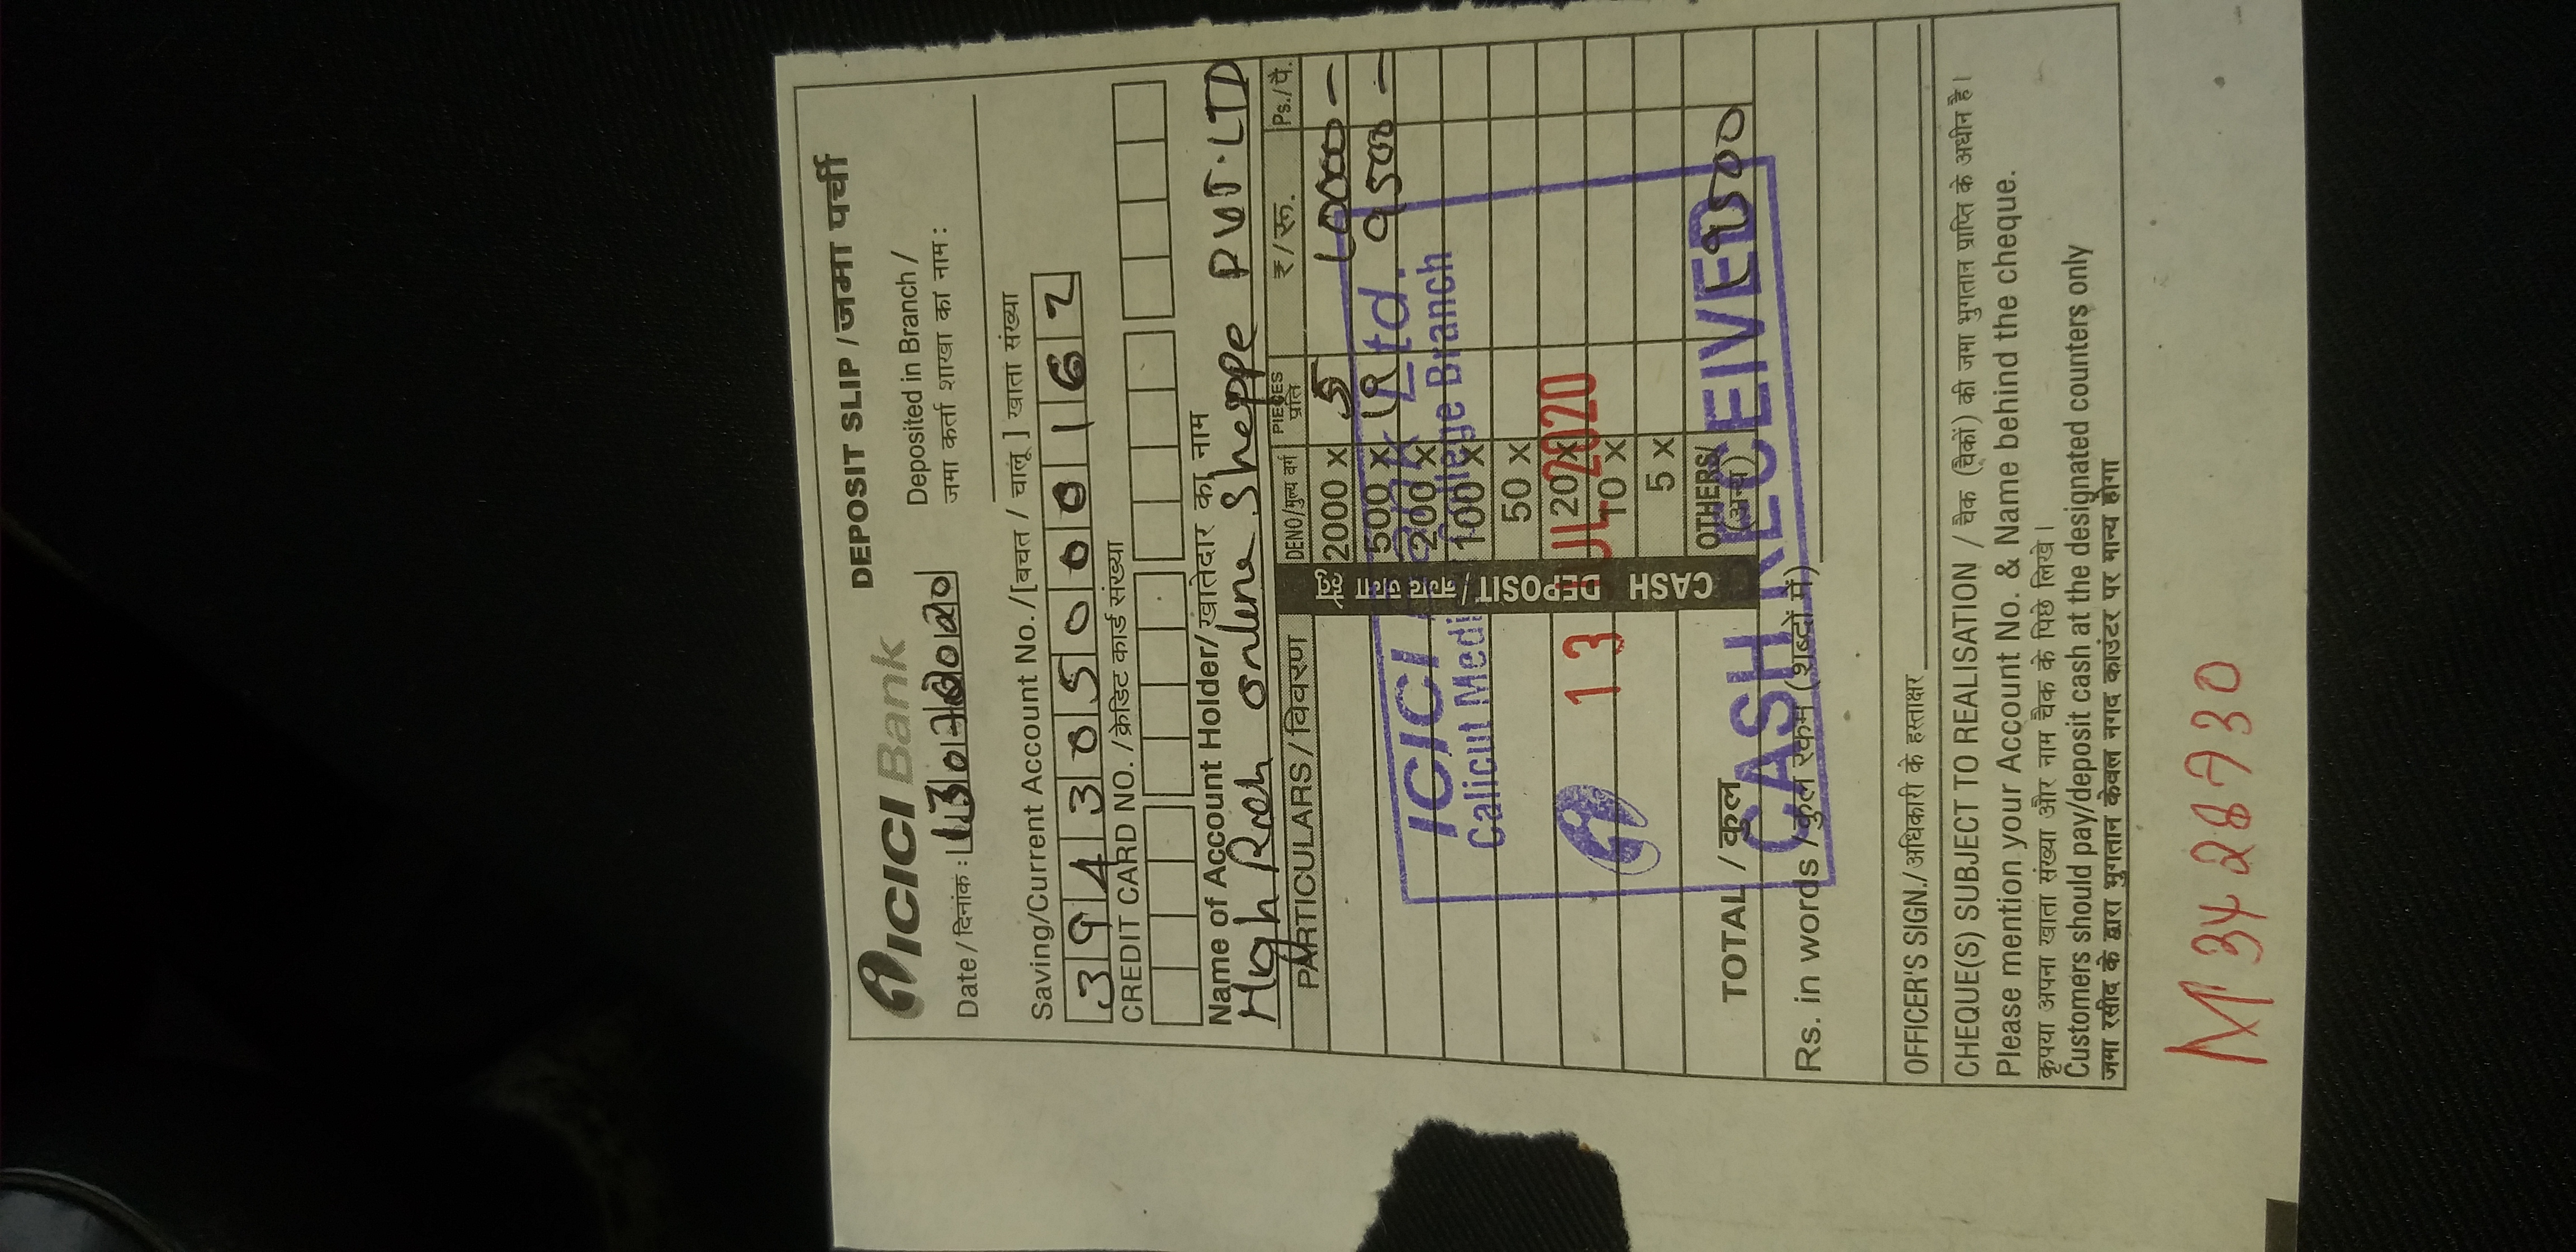 ICICI Bank
DEPOSIT SLIP / जमा पर्ची
Date / दिनांक : 13072020
Deposited in Branch /
जमा कर्ता शाखा का नाम :
Saving/Current Account No. / [बचत / चालू ] खाता संख्या
394305000162
CREDIT CARD NO. / क्रेडिट कार्ड संख्या
Name of Account Holder/ खातेदार का नाम
High Rich Online Shoppe PVT.LTD
PARTICULARS / विवरण
DENO/मुल्य वर्ग PIECES प्रति ₹/रू. Ps./पै.
CASH DEPOSIT / नगद जमा हेतु
2000 x 5 10000 —
500 x 19 9500 —
200 x
100 x
50 x
20 x
10 x
5 x
OTHERS/ (अन्य)
TOTAL / कुल 19500
ICICI Bank Ltd.
Calicut Medical College Branch
13 JUL 2020
CASH RECEIVED
Rs. in words / कुल रकम (शब्दों में)
OFFICER'S SIGN./ अधिकारी के हस्ताक्षर
CHEQUE(S) SUBJECT TO REALISATION / चैक (चैकों) की जमा भुगतान प्राप्ति के अधीन है।
Please mention your Account No. & Name behind the cheque.
कृपया अपना खाता संख्या और नाम चैक के पिछे लिखे।
Customers should pay/deposit cash at the designated counters only
जमा रसीद के द्वारा भुगतान केवल नगद काउंटर पर मान्य होगा
M3428730